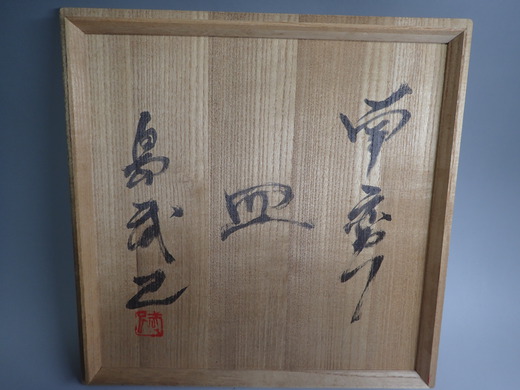 南蛮
皿
島武己